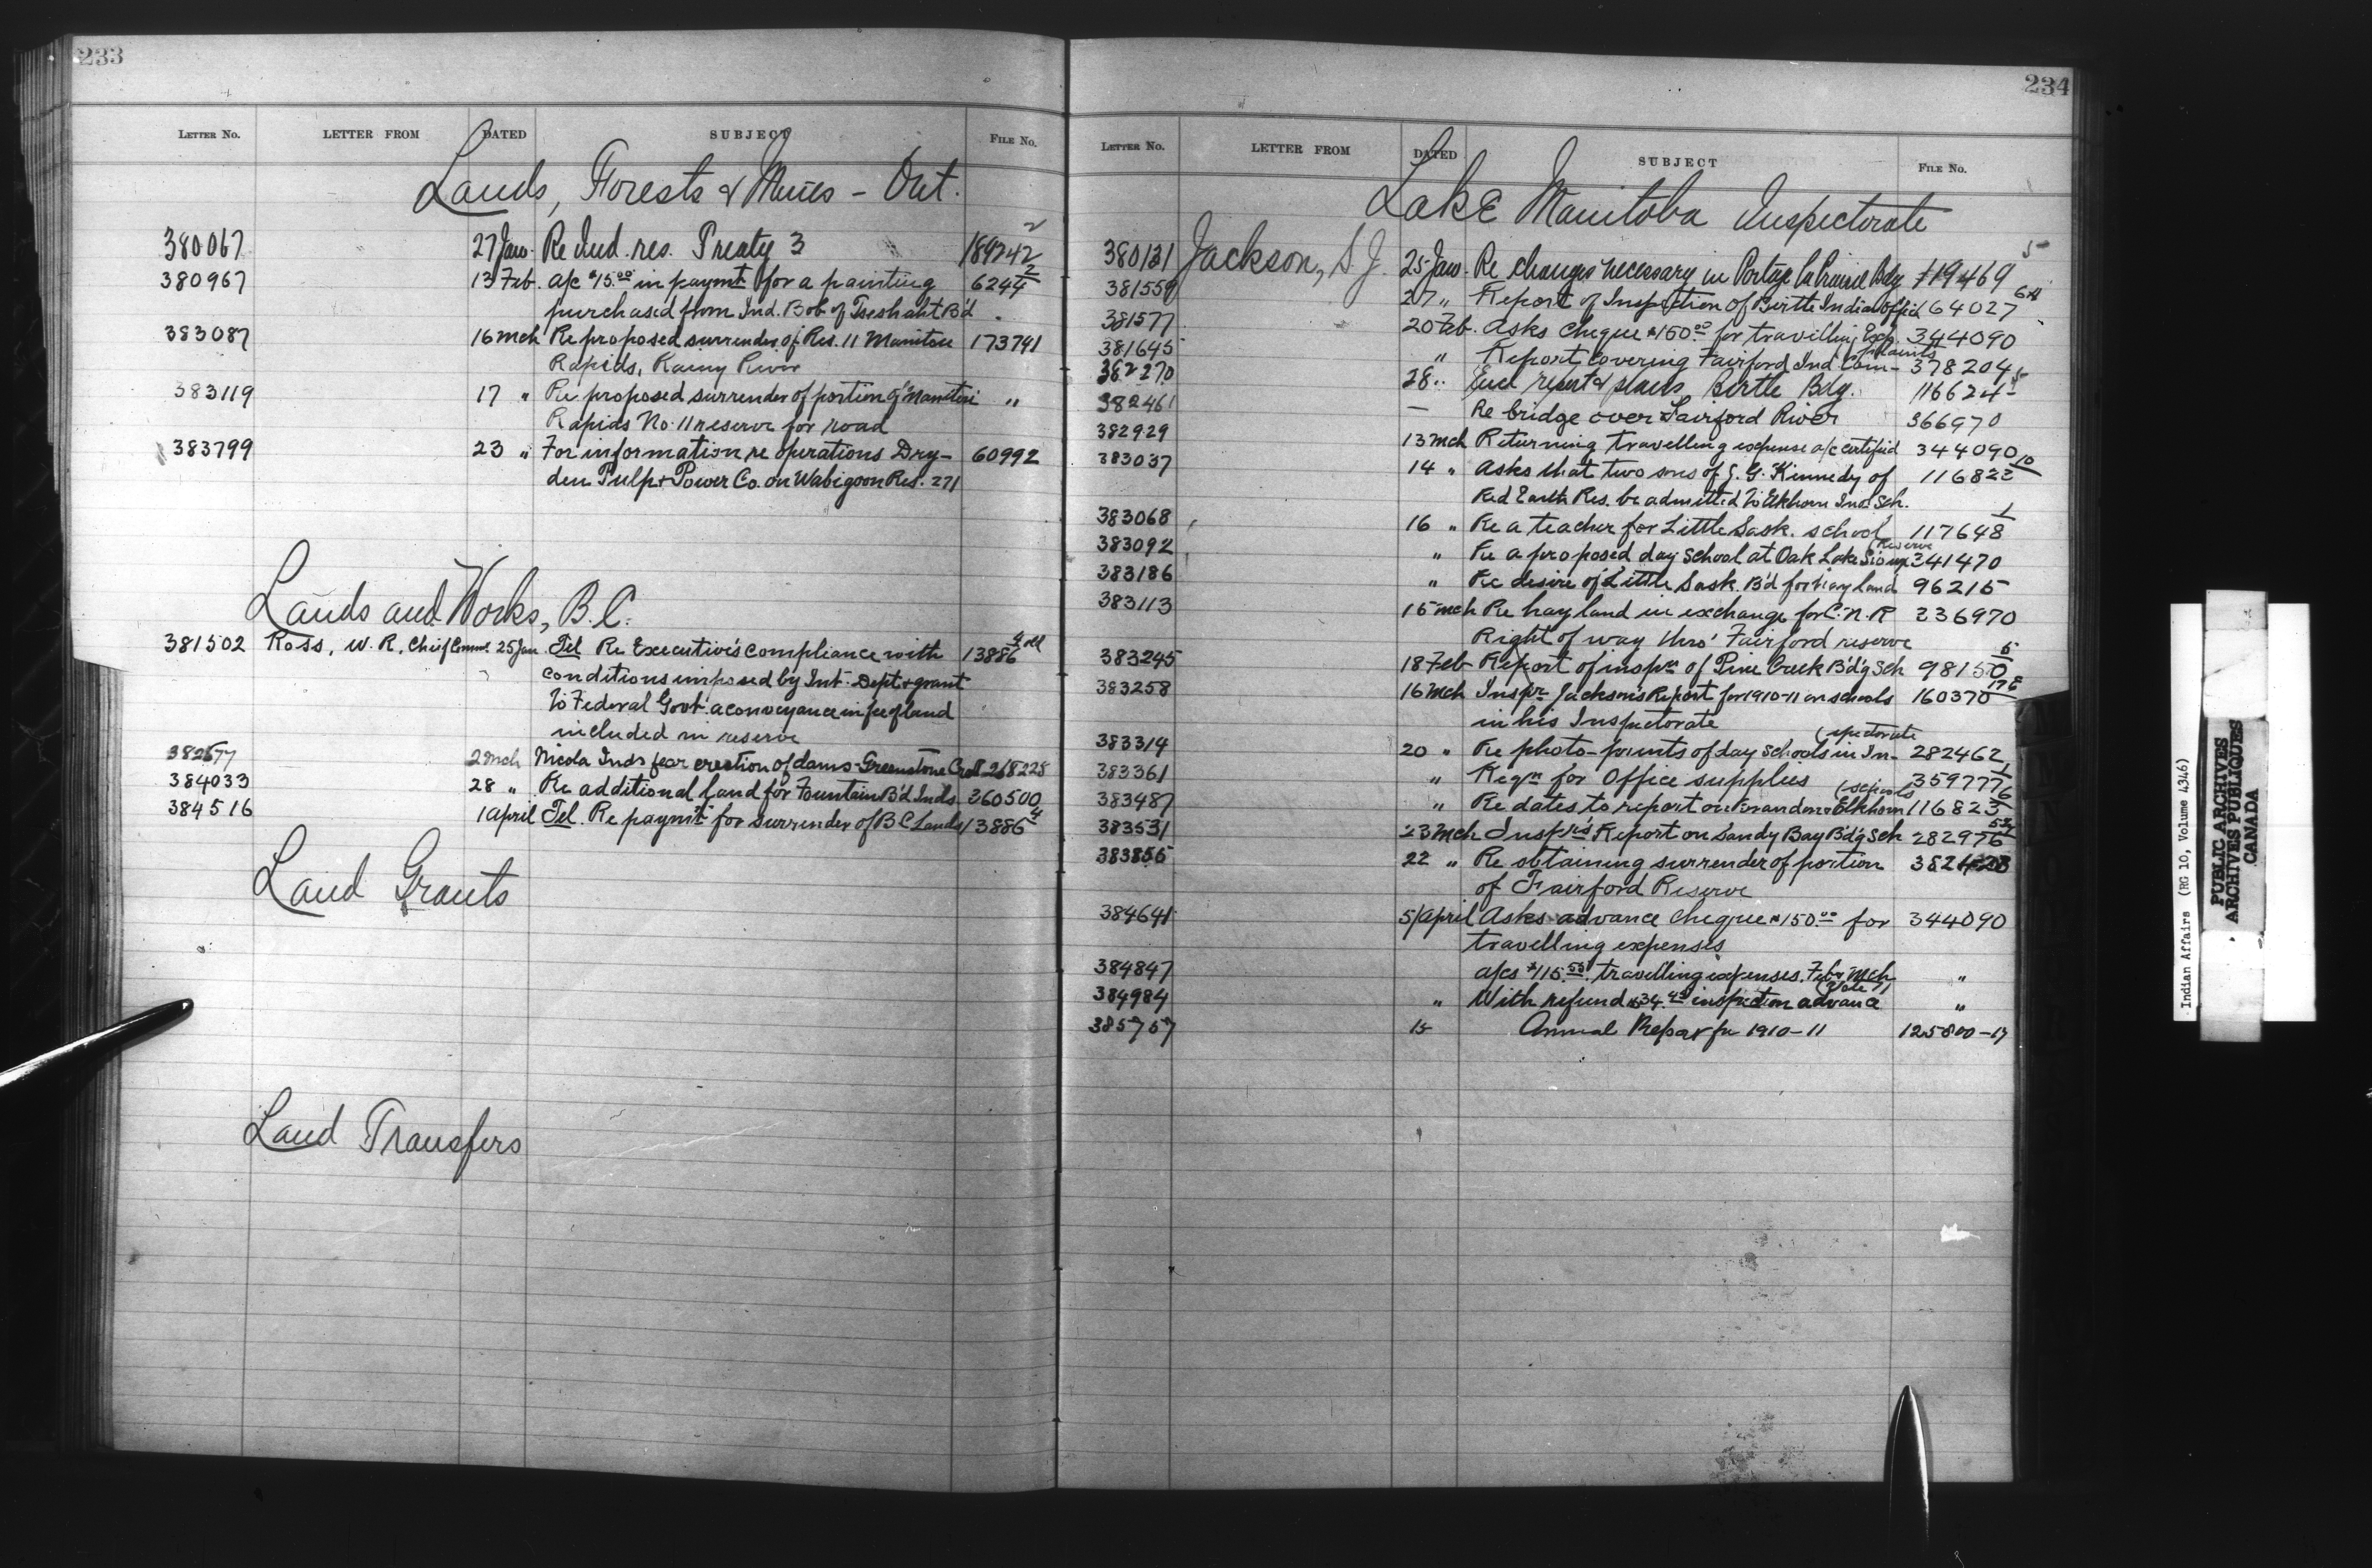 233
LETTER NO. LETTER FROM DATED SUBJECT FILE NO.
Lands, Forests & Mines - Ont.
380067 27 Jan. Re Ind. res. Treaty 3 189242 2
380967 13 Feb. a/c $15.00 in paymt for a painting 6244 2
purchased from Ind. Bob of Tseshaht B'd
383087 16 Mch Re proposed surrender of Res. 11 Manitou 173741
Rapids, Rainy River
383119 17 " Re proposed surrender of portion of Manitou "
Rapids No. 11 reserve for road
383799 23 " For information re operations Dry- 60992
den Pulp & Power Co. on Wabigoon Res. 271
Lands and Works, B.C.
381502 Ross, W. R. Chief Commr. 25 Jan Tel Re Executive's compliance with 13886 4
conditions imposed by Int. Dept & grant
to Federal Govt a conveyance in fee of land
included in reserve
382677 2 Mch Nicola Inds fear erection of dams Greenstone Creek 268228
384033 28 " Re additional land for Fountain B'd Inds. 360500
384516 1 April Tel. Re paymt for surrender of B C Lands 13886 4
Land Grants
Land Transfers
234
LETTER NO. LETTER FROM DATED SUBJECT FILE NO.
Lake Manitoba Inspectorate
380131 Jackson, S. J. 25 Jan. Re changes necessary in Portage La Prairie Bdg 119469 5
381559 27 " Report of Inspection of Birtle Indian Office 164027
381577 20 Feb. Asks cheque $150.00 for travelling Exp. 344090
381645 " Report covering Fairford Ind. Com- 378204
plaints
382270 28 " Encl report & plans Birtle Bdg. 116624 5
382461 — Re bridge over Fairford River 366970
382929 13 Mch Returning travelling expense a/c certified 344090
383037 14 " Asks that two sons of G. G. Kennedy of 116822 10
Red Earth Res. be admitted to Elkhorn Ind. Sch.
383068 16 " Re a teacher for Little Sask. school 117648 1
383092 " Re a proposed day school at Oak Lake Sioux 341470
(Reserve
383186 " Re desire of Little Sask B'd for hay land 96215
383113 15 Mch Re hay land in exchange for C. N. R 236970
Right of way thro' Fairford reserve
383245 18 Feb Report of inspn of Pine Creek B'd'g Sch 98150 5
383258 16 Mch Inspr Jackson's Report for 1910-11 on schools 160370
in his Inspectorate
383314 20 " Re photo-prints of day schools in In- 282462
(spectorate
383361 " Reqn for Office supplies 359777 1
383487 " Re dates to report on Brandon & Elkhorn 116823 6
(schools
383531 23 Mch Inspr's Report on Sandy Bay B'd'g Sch 282976
383856 22 " Re obtaining surrender of portion
of Fairford Reserve
384641 5 April Asks advance cheque $150.00 for 344090
travelling expenses
384847 a/cs $115.55 travelling expenses. Feb & Mch "
384984 " With refund inspection advance "
385757 15 Annual Report for 1910-11 125800-17
Indian Affairs (RG 10, Volume 4346)
PUBLIC ARCHIVES
ARCHIVES PUBLIQUES
CANADA